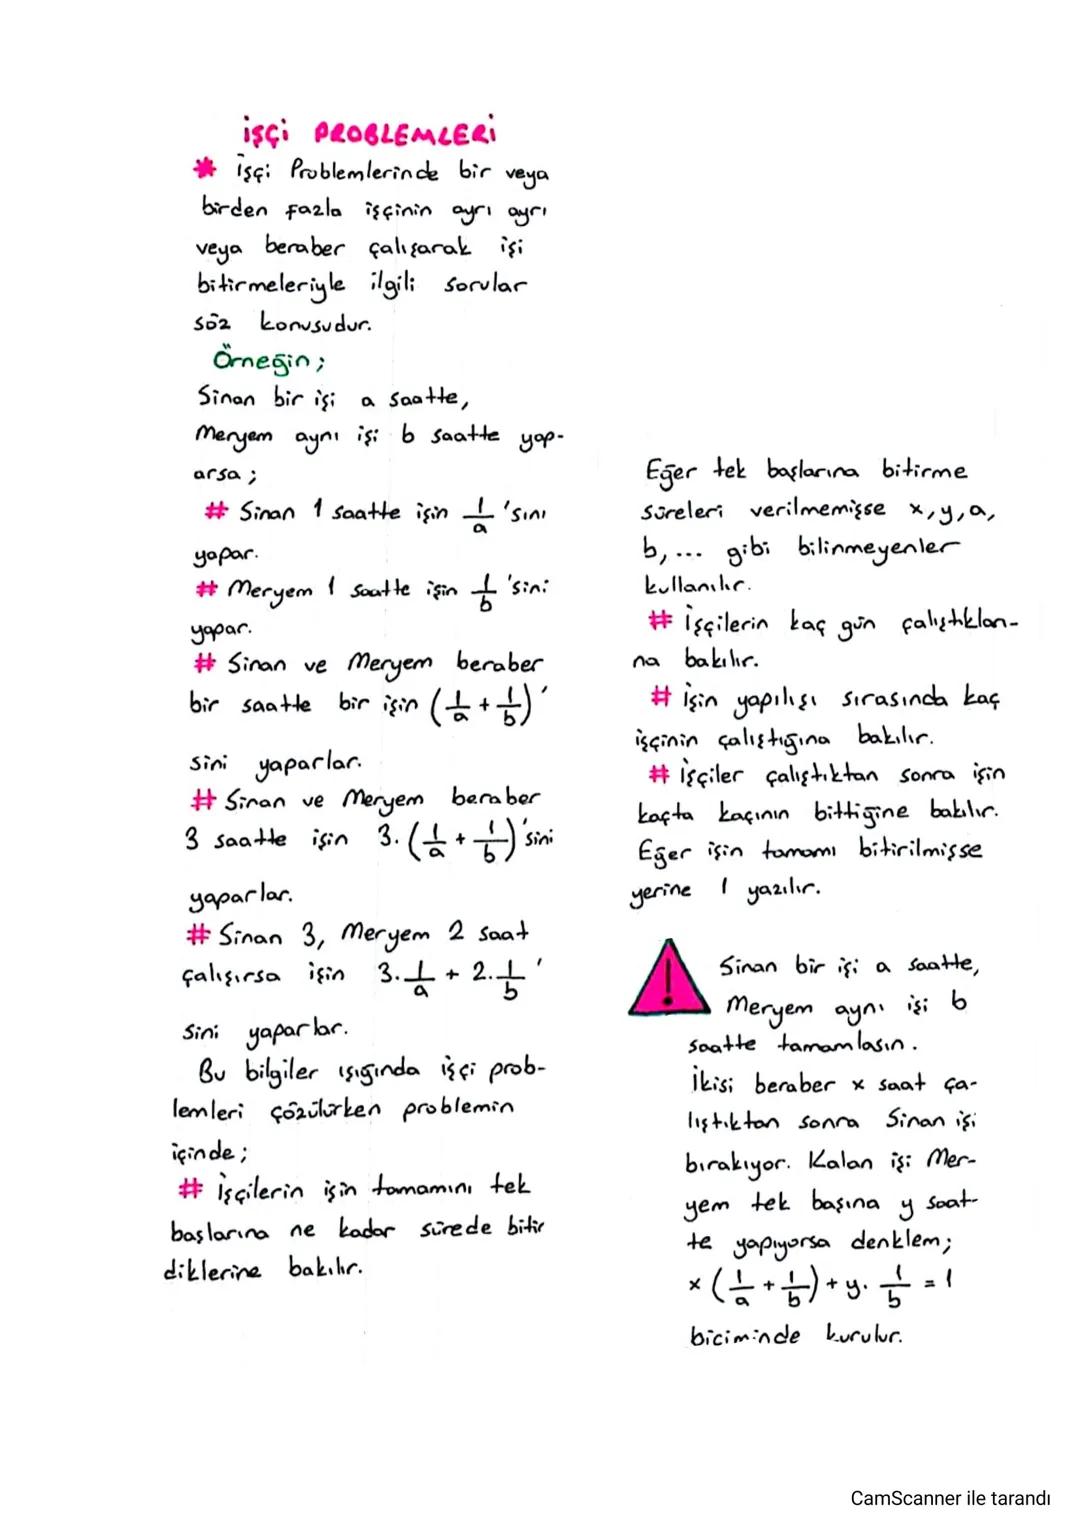 işçi PROBLEMLERi
* işçi Problemlerinde bir veya
birden fazla işçinin ayrı ayrı
veya beraber çalışarak işi
bitirmeleriyle ilgili sorular
söz konusudur.
Örneğin;
Sinan bir işi a saatte,
Meryem aynı işi b saatte yap-
arsa;
# Sinan 1 saatte işin 1/a 'sını
yapar.
# Meryem 1 saatte işin 1/b 'sini
yapar.
# Sinan ve Meryem beraber
bir saatte bir işin (1/a + 1/b)'
sini yaparlar.
# Sinan ve Meryem beraber
3 saatte işin 3.(1/a + 1/b)'sini
yaparlar.
# Sinan 3, Meryem 2 saat
çalışırsa işin 3.1/a + 2.1/b '
sini yaparlar.
Bu bilgiler ışığında işçi prob-
lemleri çözülürken problemin
içinde;
# İşçilerin işin tamamını tek
başlarına ne kadar sürede bitir
diklerine bakılır.
Eğer tek başlarına bitirme
süreleri verilmemişse x, y, a,
b, ... gibi bilinmeyenler
kullanılır.
# İşçilerin kaç gün çalıştıkları-
na bakılır.
# işin yapılışı sırasında kaç
işçinin çalıştığına bakılır.
# işçiler çalıştıktan sonra işin
kaçta kaçının bittiğine bakılır.
Eğer işin tamamı bitirilmişse
yerine 1 yazılır.
! Sinan bir işi a saatte,
Meryem aynı işi b
saatte tamamlasın.
İkisi beraber x saat ça-
lıştıktan sonra Sinan işi
bırakıyor. Kalan işi Mer-
yem tek başına y saat-
te yapıyorsa denklem;
x(1/a + 1/b) + y. 1/b = 1
biciminde kurulur.
CamScanner ile tarandı